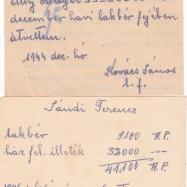 december havi lakbér fejében
átvettem.
1944 dec. hó
Kovács János
s.f.
Sándi Ferenc
lakbér 9100 A.P.
ház fel. illeték 32000 ---
41,100 A.P.